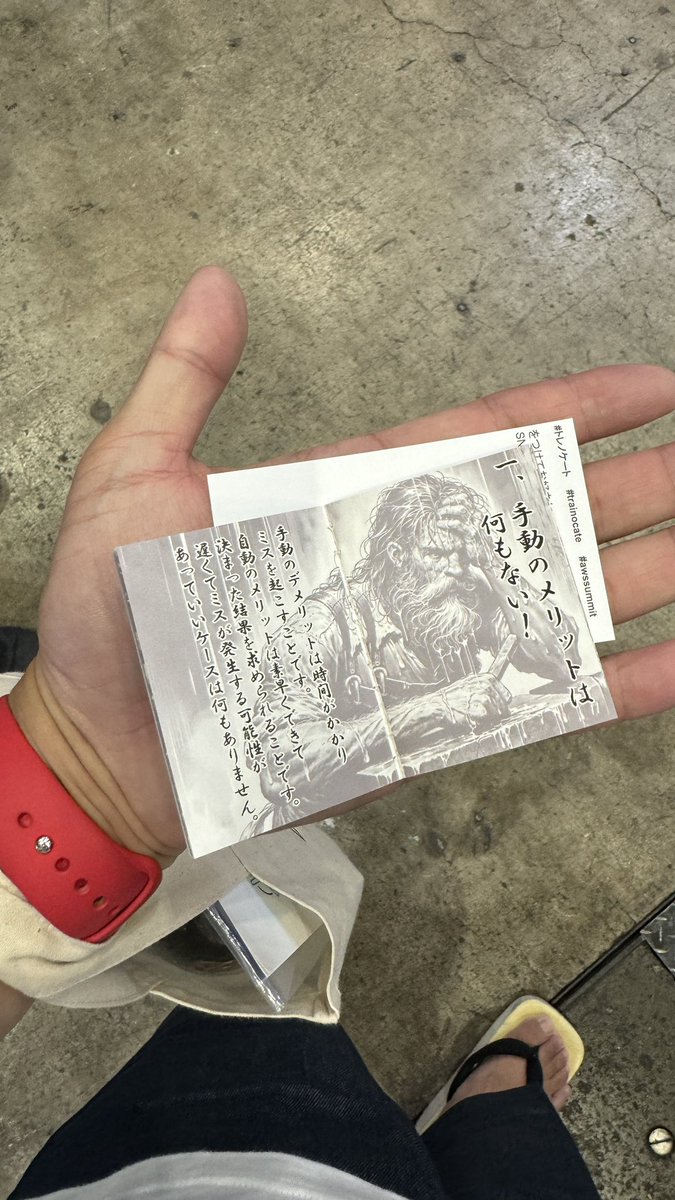 一、手動のメリットは
何もない！
手動のデメリットは時間がかかり
ミスを起こすことです。
自動のメリットは素早くできて
決まった結果を求められることです。
遅くてミスが発生する可能性が
あっていいケースは何もありません。
#トレノケート #trainocate #awssummit
をつけて
SN